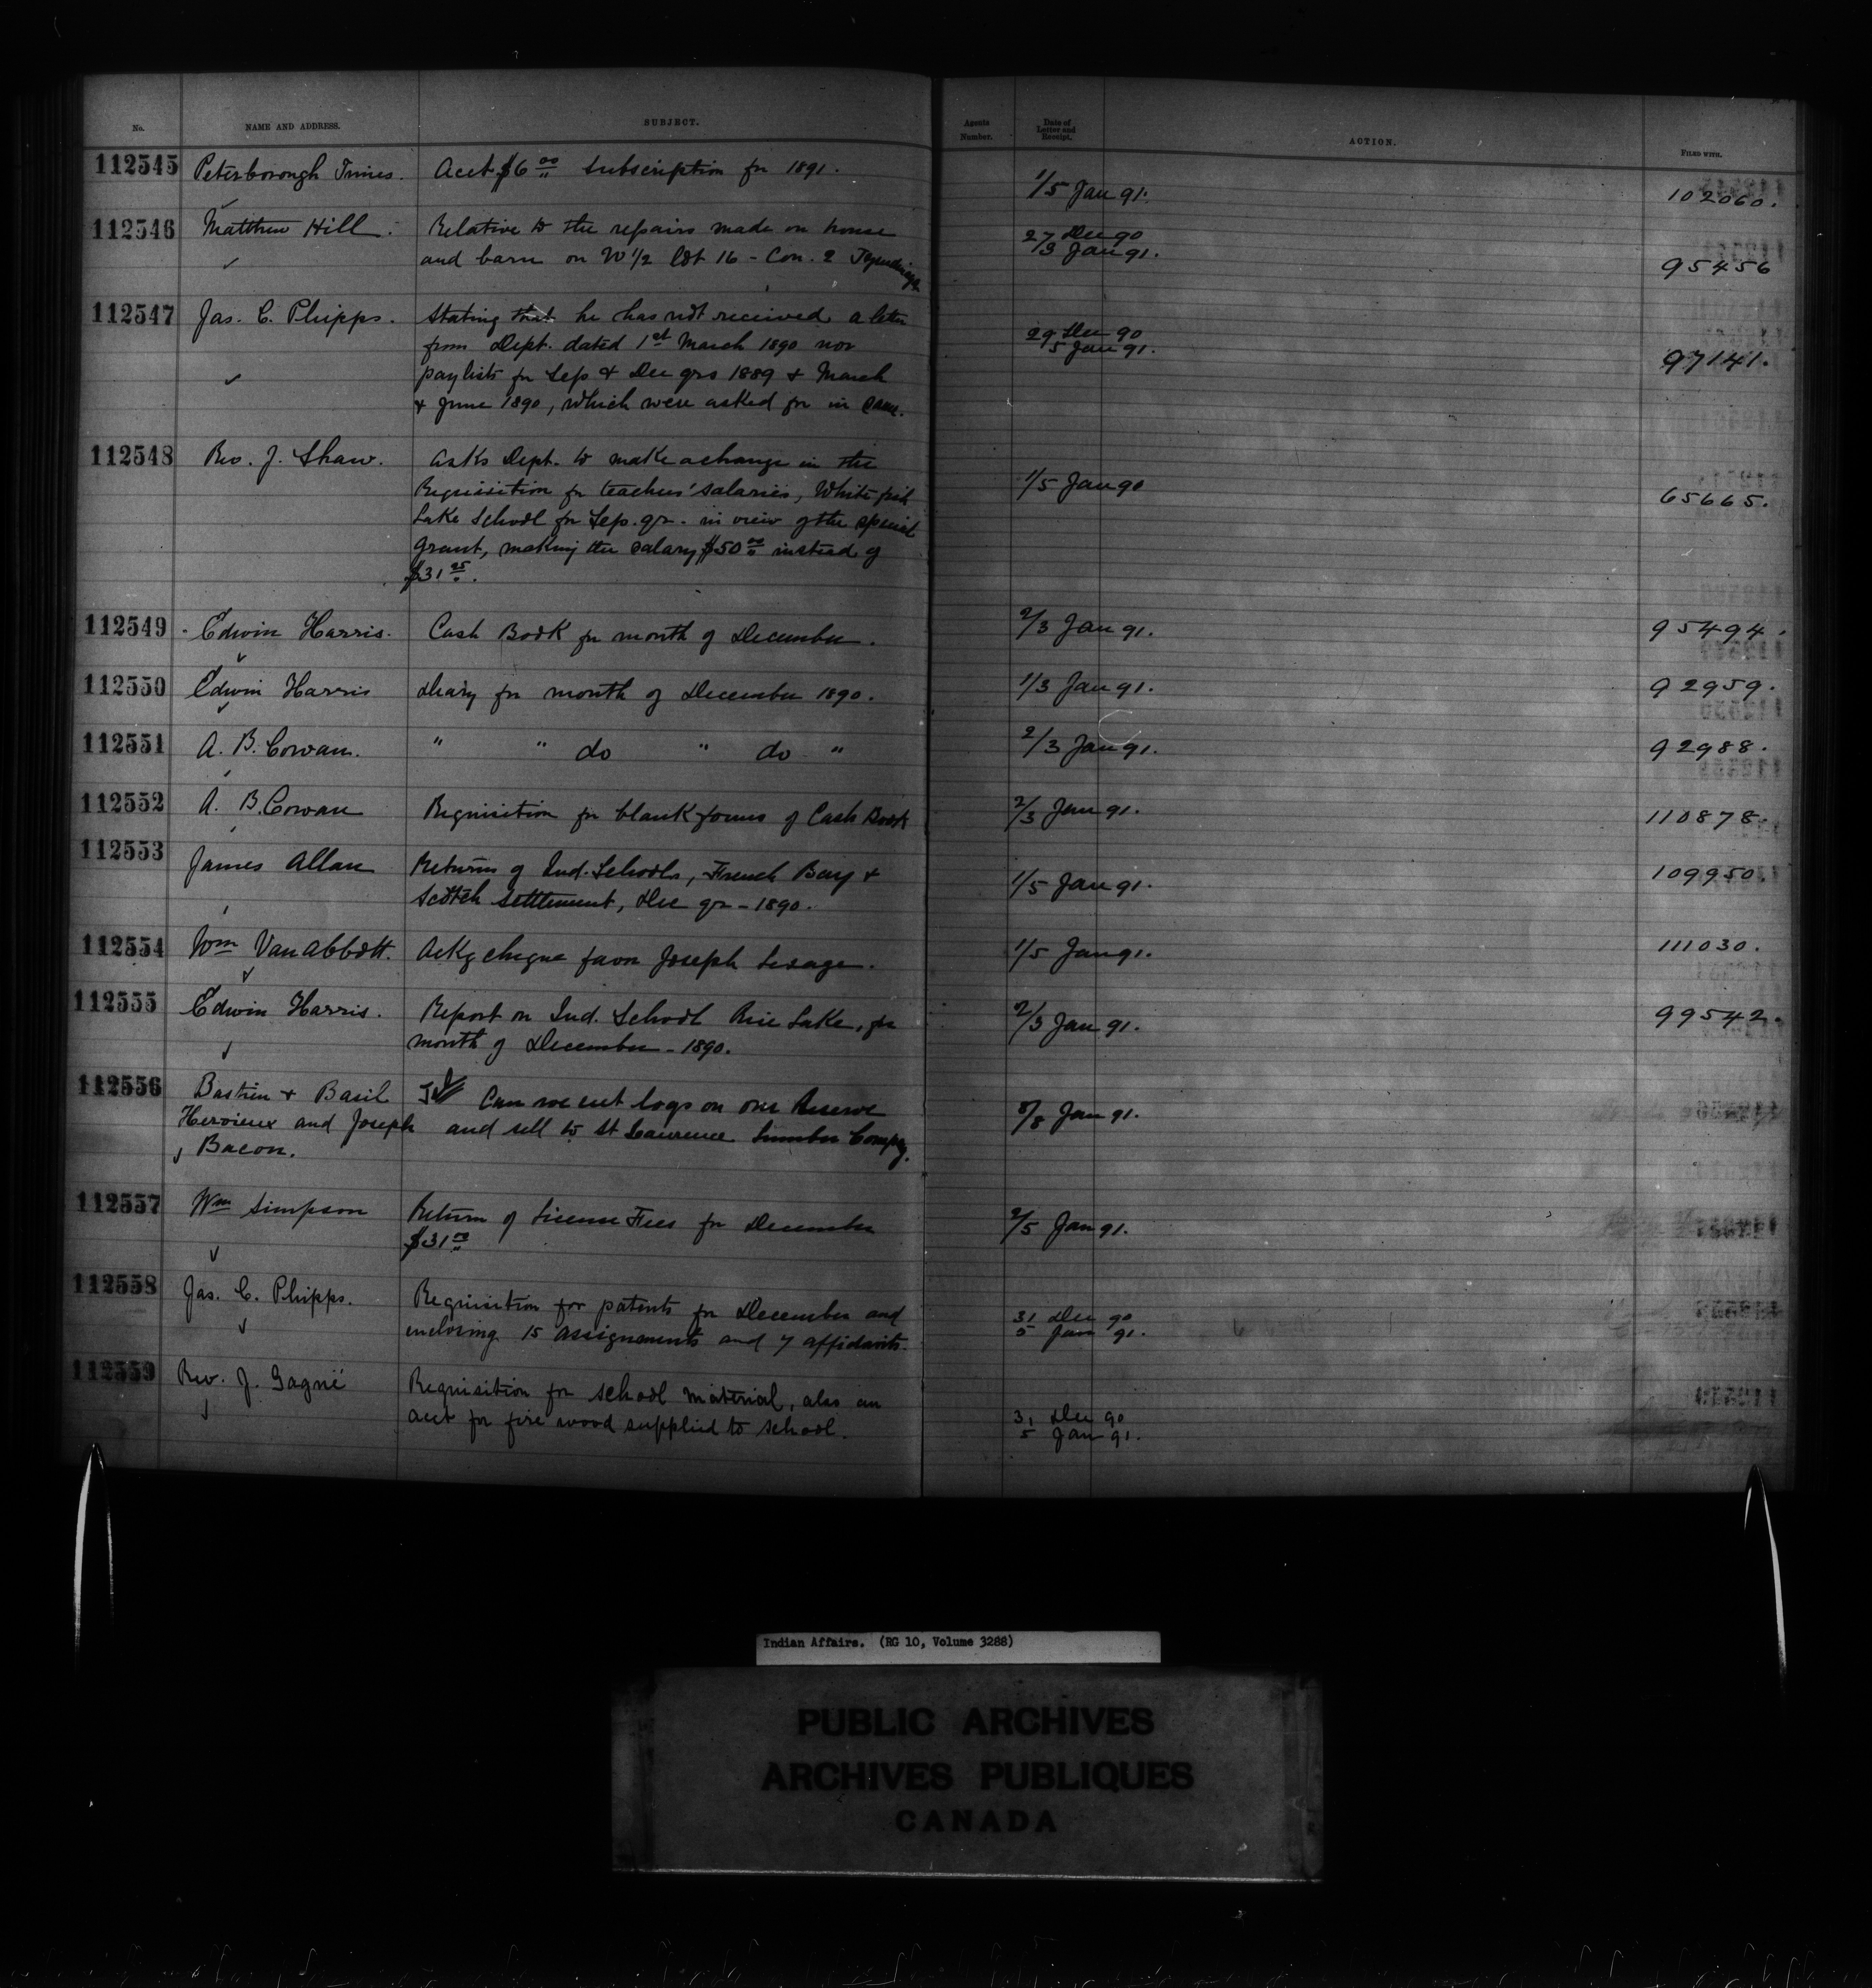 No. NAME AND ADDRESS. SUBJECT. Agents Number. Date of Letter and Receipt. ACTION. FILED WITH.
112545 Peterborough Times. Acct $6 00 Subscription for 1891. 1/5 Jan 91. 102060.
112546 Matthew Hill. Relative to the repairs made on house 27 Dec 90
and barn on W 1/2 Lot 16 - Con. 2 Tyendinaga 3 Jan 91. 95456
112547 Jas. C. Phipps. Stating that he has not received a letter 29 Dec 90
from Dept. dated 1st March 1890 nor 5 Jan 91. 97141.
paylists for Sep & Dec qrs 1889 & March
& June 1890, which were asked for in same.
112548 Rev. J. Shaw. Asks Dept. to make a change in the
Requisition for teachers' salaries, White fish 1/5 Jan 90 65665.
Lake School for Sep. qr. in view of the special
grant, making the salary $50 00 instead of
$31 25.
112549 Edwin Harris. Cash Book for month of December. 2/3 Jan 91. 95494.
112550 Edwin Harris Diary for month of December 1890. 1/3 Jan 91. 92959.
112551 A. B. Cowan. " " do " do " 2/3 Jan 91. 92988.
112552 A. B. Cowan Requisition for blank forms of Cash Book 2/3 Jan 91. 110878.
112553 James Allan Returns of Ind. Schools, French Bay & 1/5 Jan 91. 109950.
Scotch Settlement, Dec qr - 1890.
112554 Wm Van Abbott. Ackg cheque favor Joseph Lesage. 1/5 Jan 91. 111030.
112555 Edwin Harris. Report on Ind. School Rice Lake, for 2/3 Jan 91. 99542.
month of December - 1890.
112556 Bastien & Basil Can we cut logs on our Reserve
Hervieux and Joseph and sell to St Laurence Lumber Compy. 8/8 Jan 91.
Bacon.
112557 Wm Simpson Return of License Fees for December 2/5 Jan 91.
$31 00
112558 Jas. C. Phipps. Requisition for patents for December and 31 Dec 90
enclosing 15 assignments and 7 affidavits. 5 Jan 91.
112559 Rev. J. Gagné Requisition for school material, also an 31 Dec 90
acct for fire wood supplied to school. 5 Jan 91.
Indian Affairs. (RG 10, Volume 3288)
PUBLIC ARCHIVES
ARCHIVES PUBLIQUES
CANADA